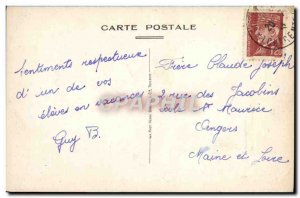 CARTE POSTALE
Sentiments respectueux
d'un de vos
élèves en vacances
Guy B.
Frère Claude Joseph
2 rue des Jacobins
École St Maurice
Angers
Maine et Loire